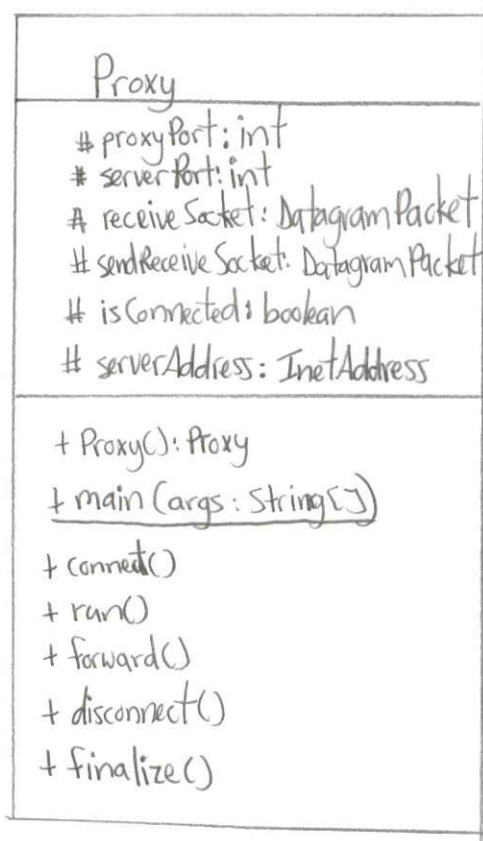 Proxy
# proxyPort: int
# serverPort: int
# receiveSocket: DatagramPacket
# sendReceiveSocket: DatagramPacket
# isConnected: boolean
# serverAddress: InetAddress
+ Proxy(): Proxy
+ main(args: String[])
+ connect()
+ run()
+ forward()
+ disconnect()
+ finalize()